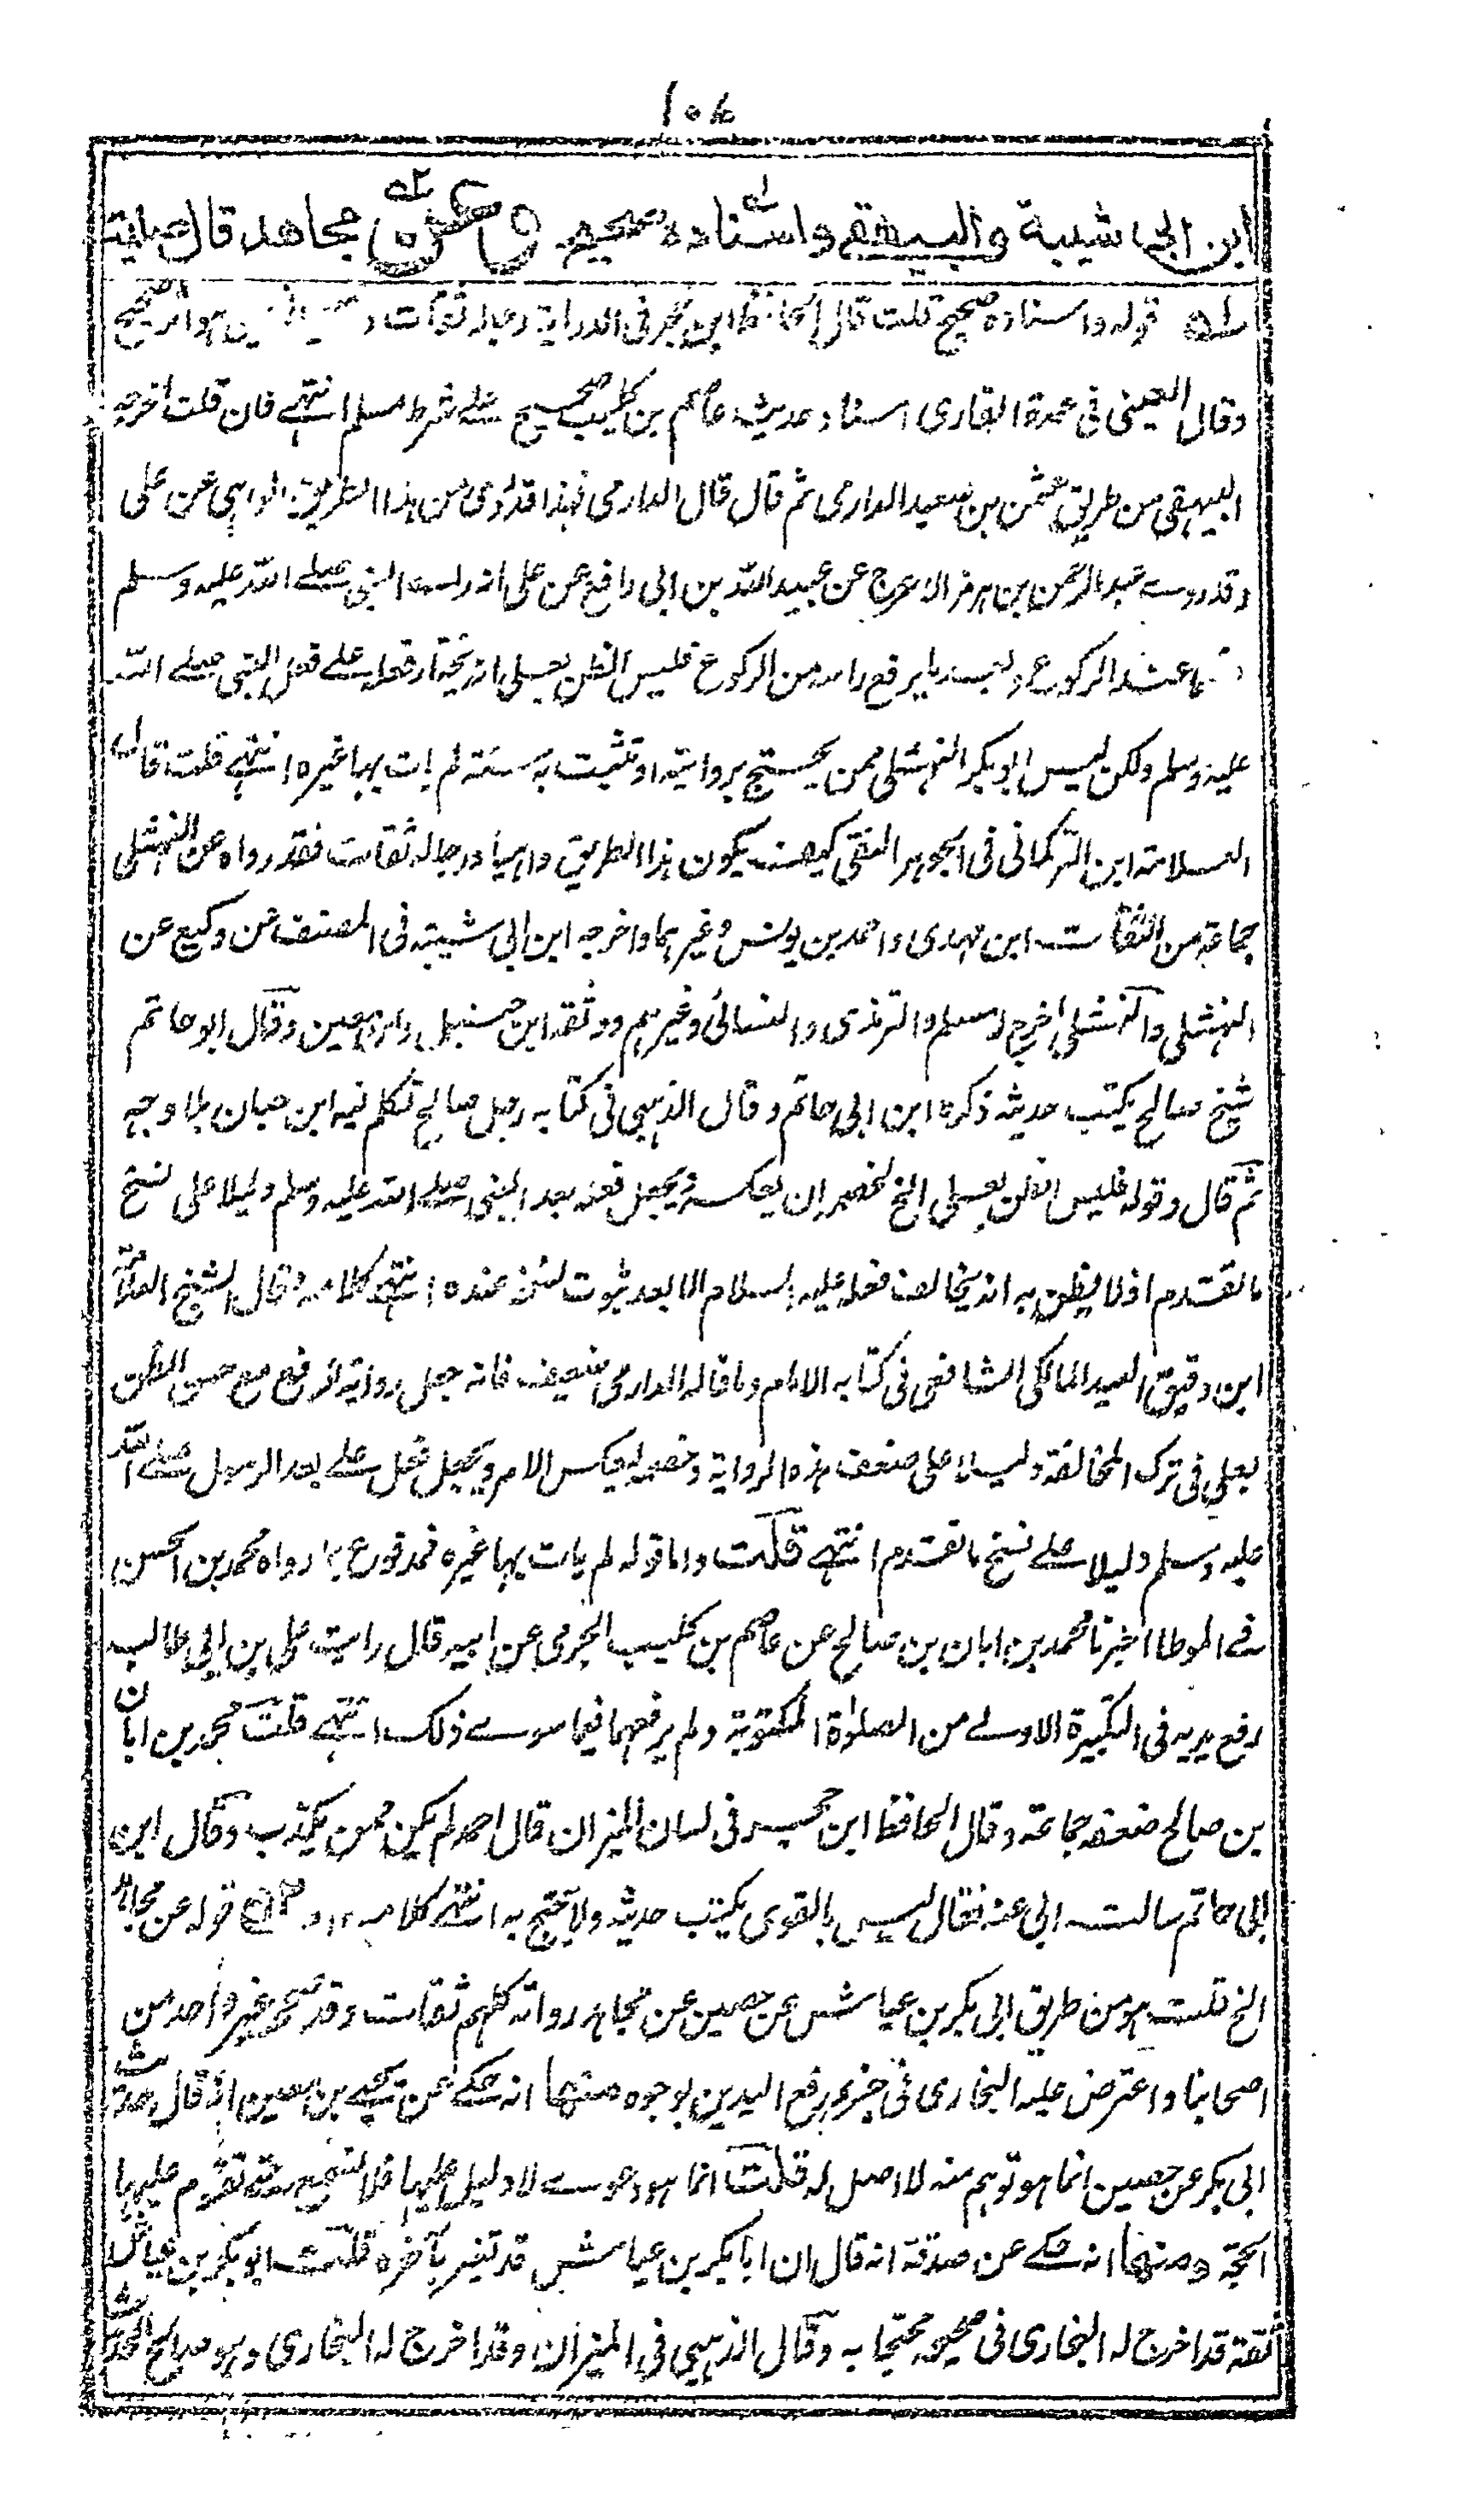 ابن ابی شیبة والبیهقی واسناده صحیح وعن مجاهد قال صلیت
قوله واسناده صحیح قلت قال الحافظ ابن حجر فی الدرایة رجاله ثقات
وقال العینی فی عمدة القاری اسناد حدیث عاصم بن کلیب صحیح علے شرط مسلم انتہے فان قلت اخرجہ
البیہقی من طریق عثمن بن سعید الدارمی ثم قال قال الدارمی فہذا قد روی من ہذا الطریق الواہی عن علی
وقد روے عبد الرحمن بن ہرمز الاعرج عن عبید اللہ بن ابی رافع عن علی انہ رای النبی صلے اللہ علیہ وسلم
عند الرکوع وبعد ما یرفع راسہ من الرکوع فلیس الظن بعلی انہ یختار فعلہ علے فعل النبی صلے اللہ
علیہ وسلم ولکن لیس ابو بکر النہشلی ممن یحتج بروایتہ او تثبت بہ سنة لم یات بہا غیرہ انتہے قلت قال
العلامة ابن الترکمانی فی الجوہر النقی کیف یکون ہذا الطریق واہیا ورجالہ ثقات فقد رواہ عن النہشلی
جماعة من الثقات ابن مہدی واحمد بن یونس وغیرہما واخرجہ ابن ابی شیبة فی المصنف عن وکیع عن
النہشلی والنہشلی اخرج لہ مسلم والترمذی والنسائی وغیرہم ووثقہ ابن حنبل وابن معین وقال ابو حاتم
شیخ صالح یکتب حدیثہ ذکرہ ابن ابی حاتم وقال الذہبی فی کتابہ رجل صالح تکلم فیہ ابن حبان بلا وجہ
ثم قال وقولہ فلیس الظن بعلی الخ لخصمہ ان یعکسہ ویجعل فعلہ بعد النبی صلے اللہ علیہ وسلم دلیلا علی نسخ
ما تقدم اذ لا یظن بہ انہ یخالف فعلہ علیہ السلام الا بعد ثبوت نسخہ عندہ انتہے کلامہ وقال الشیخ العلامة
ابن دقیق العید المالکی الشافعی فی کتابہ الامام وما قالہ الدارمی ضعیف فانہ جعل روایة الرفع مع حسن الظن
بعلی فی ترک المخالفة دلیلا علی ضعف ہذہ الروایة وخصمہ یعکس الامر ویجعل فعل علے بعد الرسول صلے اللہ
علیہ وسلم دلیلا علے نسخ ما تقدم انتہے قلت واما قولہ لم یات بہا غیرہ فمدفوع بما رواہ محمد بن الحسن
فے الموطا اخبرنا محمد بن ابان بن صالح عن عاصم بن کلیب الجرمی عن ابیہ قال رایت علی بن ابی طالب
رفع یدیہ فی التکبیرة الاولے من الصلوٰة المکتوبة ولم یرفعہما فیما سوے ذلک انتہے قلت محمد بن ابان
بن صالح ضعفہ جماعة وقال الحافظ ابن حجر فی لسان المیزان قال احمد لم یکن ممن یکذب وقال ابن
ابی حاتم سالت ابی عنہ فقال لیس بالقوی یکتب حدیثہ ولا یحتج بہ انتہے کلامہ ۱۲ قولہ عن مجاہد
الخ قلت ہو من طریق ابی بکر بن عیاش عن حصین عن مجاہد رواتہ کلہم ثقات وقد صححہ غیر واحد من
اصحابنا واعترض علیہ البخاری فی جزء رفع الیدین بوجوہ منہا انہ حکے عن یحیے بن معین انہ قال حدیث
ابی بکر عن حصین انما ہو توہم منہ لا اصل لہ قلت انما ہو دعوے لا دلیل علیہا فلا تسمع حتے تقوم علیہا
الحجة ومنہا انہ حکے عن صدقة انہ قال ان ابا بکر بن عیاش قد تغیر بآخرہ قلت ابو بکر بن عیاش
ثقة قد اخرج لہ البخاری فی صحیحہ محتجا بہ وقال الذہبی فی المیزان وقد اخرج لہ البخاری وہو صالح الحدیث